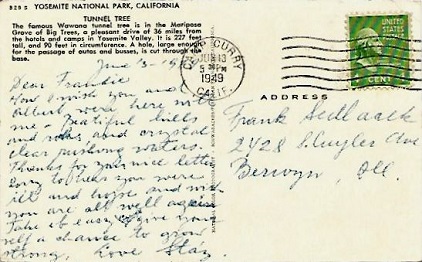 829 S YOSEMITE NATIONAL PARK, CALIFORNIA
TUNNEL TREE
The famous Wawona tunnel tree is in the Mariposa
Grove of Big Trees, a pleasant drive of 36 miles from
the hotels and camps in Yosemite Valley. It is 227 feet
tall, and 90 feet in circumference. A hole, large enough
for the passage of autos and busses, is cut through the
base.
June 13 - 19
Dear Frankie
How I wish you and
were here with
me - Beautiful hills
and and crystal
clear rushing waters.
Thanks for your nice letter
Sorry to hear you were
ill and hope and wish
you are all well again
Take it easy give your
self a chance to grow
strong, Love
CAMP CURRY
JUN 13
5 PM
1949
CALIF.
UNITED STATES
1 CENT
ADDRESS
Frank Sedlacek
2428 Cuyler Ave
Berwyn, Ill.